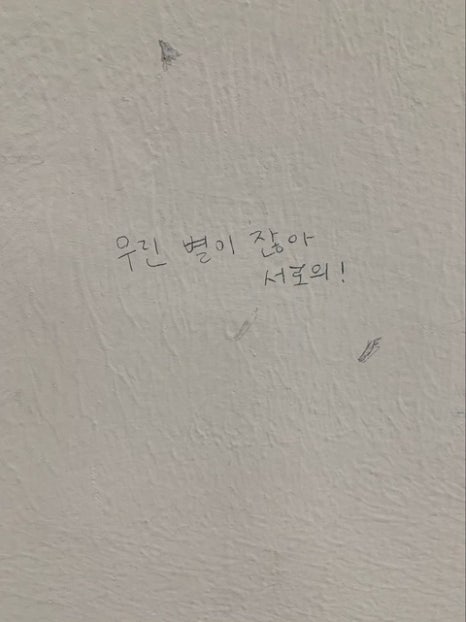 우린 별이 잖아
서로의!